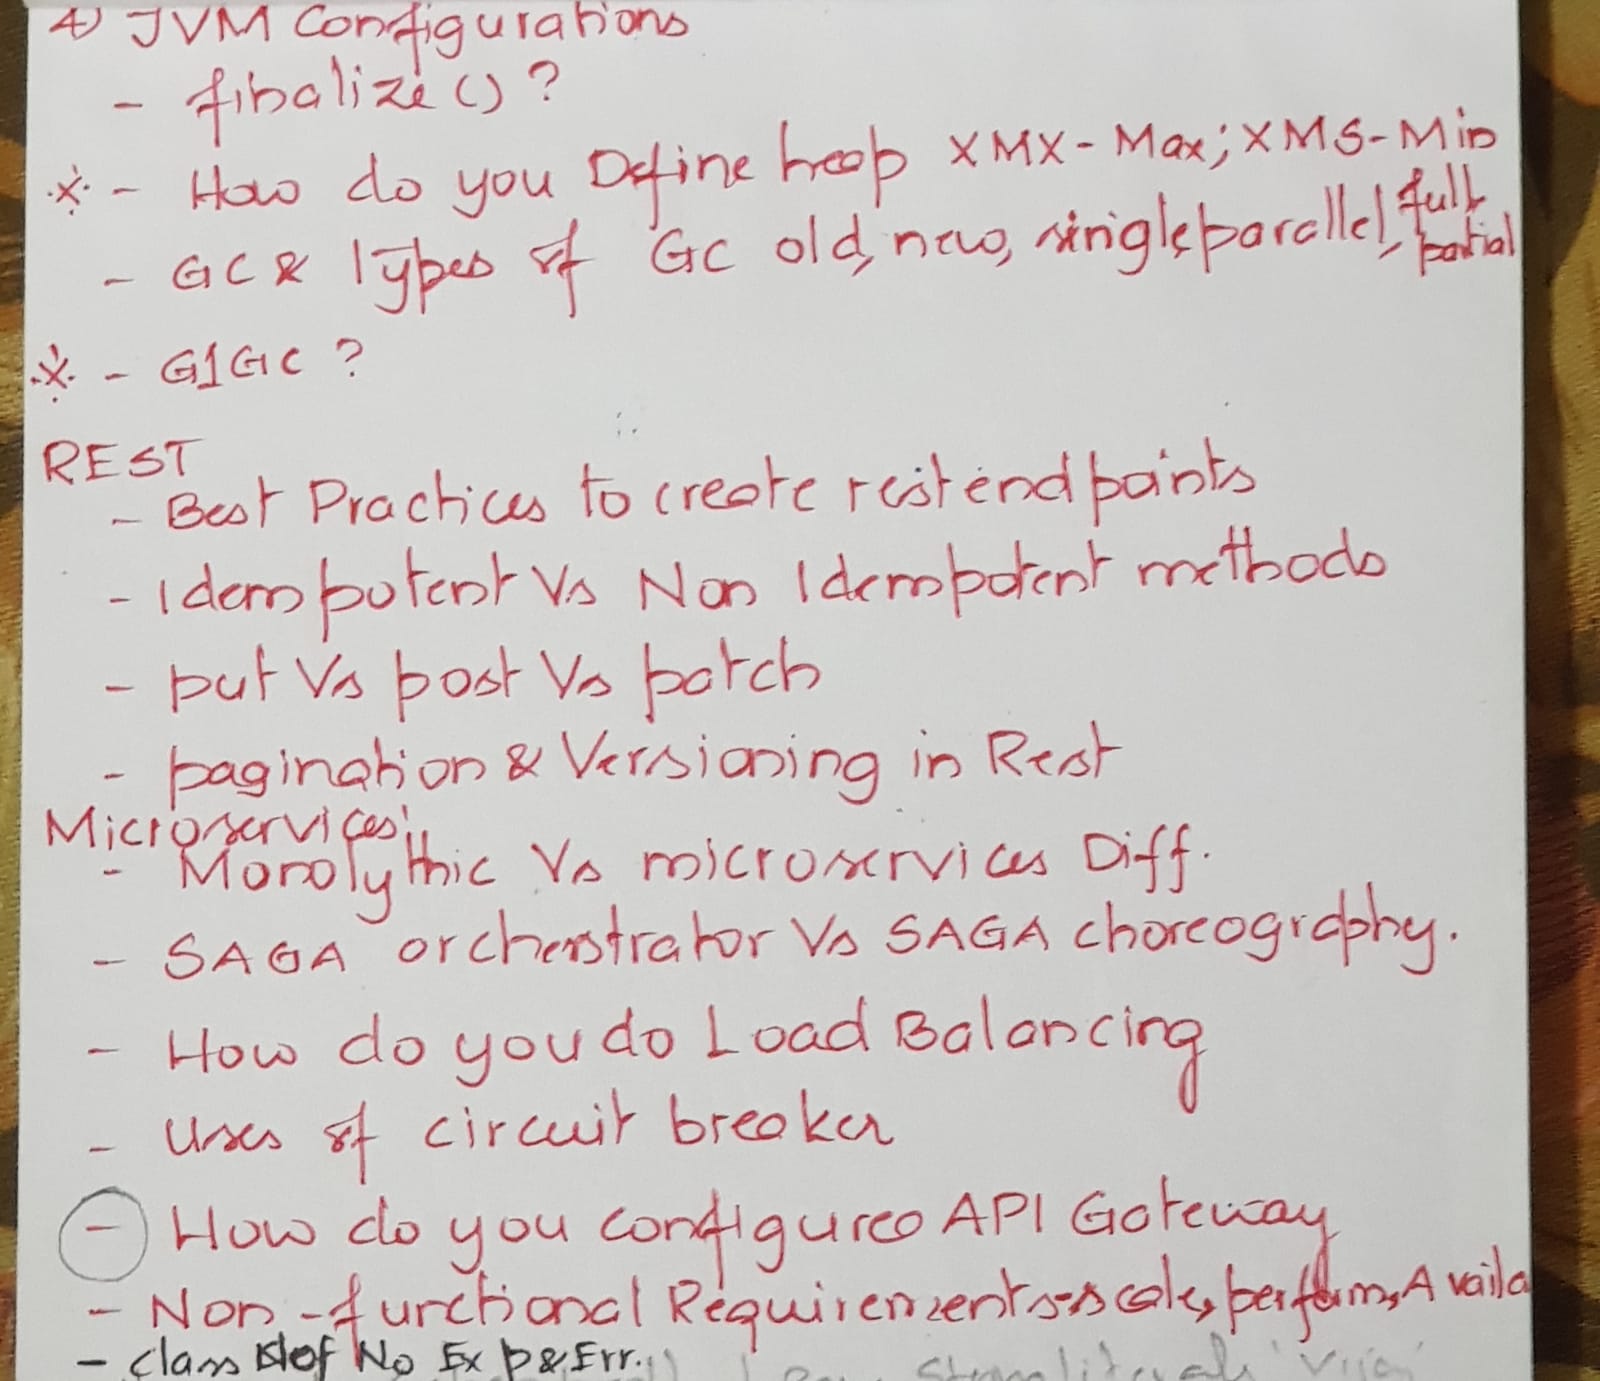 4) JVM Configurations
- finalize() ?
※ - How do you Define heap XMX-Max; XMS-Min
- GC & Types of GC old, new, single, parallel, full, partial
※ - G1GC ?
REST
- Best Practices to create rest end points
- Idempotent Vs Non Idempotent methods
- put Vs post Vs patch
- pagination & Versioning in Rest
Microservices:
- Monolythic Vs microservices Diff.
- SAGA orcherstrator Vs SAGA choreography.
- How do you do Load Balancing
- Uses of circuit breaker
- How do you configure API Gateway
- Non-functional Requirements-scale, perform, Availa
- class Not No Exp & Err.